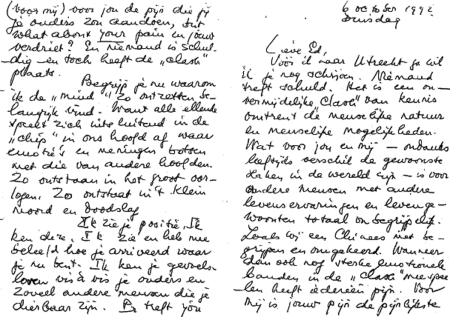 6 october 1992
dinsdag
Lieve Ed,
Vóór ik naar Utrecht ga wil
ik je nog schrijven. Niemand
treft schuld. Het is een on-
vermijdelijke "clash" van kennis
omtrent de menselijke natuur
en menselijke mogelijkheden.
Wat voor jou en mij – ondanks
leeftijds verschil de gewoonste
zaken in de wereld zijn – is voor
andere mensen met andere
levenservaringen en levenge-
woonten totaal onbegrijpelijk.
Zoals wij een Chinees niet be-
grijpen en omgekeerd. Wanneer
dan ook nog sterke emotionele
banden in de "clash" meespe-
len heeft iedereen pijn. Voor
mij is jouw pijn de pijnlijkste
(voor mij) voor jou de pijn die jij
je ouders zou aandoen, but
what about your pain en jouw
verdriet? En niemand is schul-
dig en toch heeft de "clash"
plaats.
Begrijp je nu waarom
ik de "mind" zo ontzettend be-
langrijk vind. Want alle ellende
speelt zich uitsluitend in de
"chip" in ons hoofd af waar
emotie's en meningen botsen
met die van andere hoofden.
Zo ontstaan in het groot oor-
logen. Zo ontstaat in 't klein
moord en doodslag
Ik zie je positie. Ik
ken deze. Ik zie en heb nu
beleefd hoe je arriveerd waar
je nu bent. Ik ken je gevoel-
leven vis à vis je ouders en
zoveel andere mensen die je
dierbaar zijn. Er treft jou